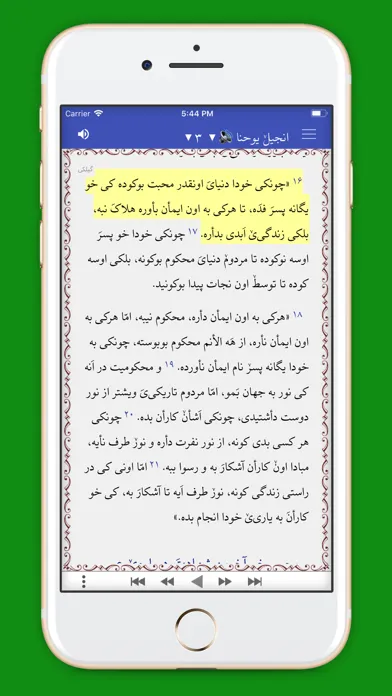 Carrier 5:44 PM
انجیلˇ یوحنا ▼ ۳ ▼
گیلکی
۱۶ «چونکی خودا دنیایَ اونقدر محبت بوکوده کی خو
یگانه پسرَ فدَه، تا هرکی به اون ایمأن بأوره هلاکَ نبه،
بلکی زندگی‌یˇ اَبدی بدأره. ۱۷ چونکی خودا خو پسرَ
اوسه نوکوده تا مردومˇ دنیایَ محکوم بوکونه، بلکی اوسه
کوده تا توسطˇ اون نجات پیدا بوکونید.
۱۸ «هرکی به اون ایمأن دأره، محکوم نیبه، امّا هرکی به
اون ایمأن نأره، از هَه الأنم محکوم بوبوسته، چونکی به
خودا یگانه پسرˇ نام ایمأن نأورده. ۱۹ و محکومیت در اَنه
کی نور به جهان بَمو، امّا مردوم تاریکی‌یَ ویشتر از نور
دوست دأشتیدی، چونکی اَشأنˇ کارأن بده. ۲۰ چونکی
هر کسی بدی کونه، از نور نفرت دأره و نورˇ طرف نأیه،
مبادا اونˇ کارأن آشکارَ به و رسوا ببه. ۲۱ امّا اونی کی در
راستی زندگی کونه، به نورˇ طرف اَیه تا آشکارَ به، کی خو
کارأنَ به یاری‌یˇ خودا انجام بده.»